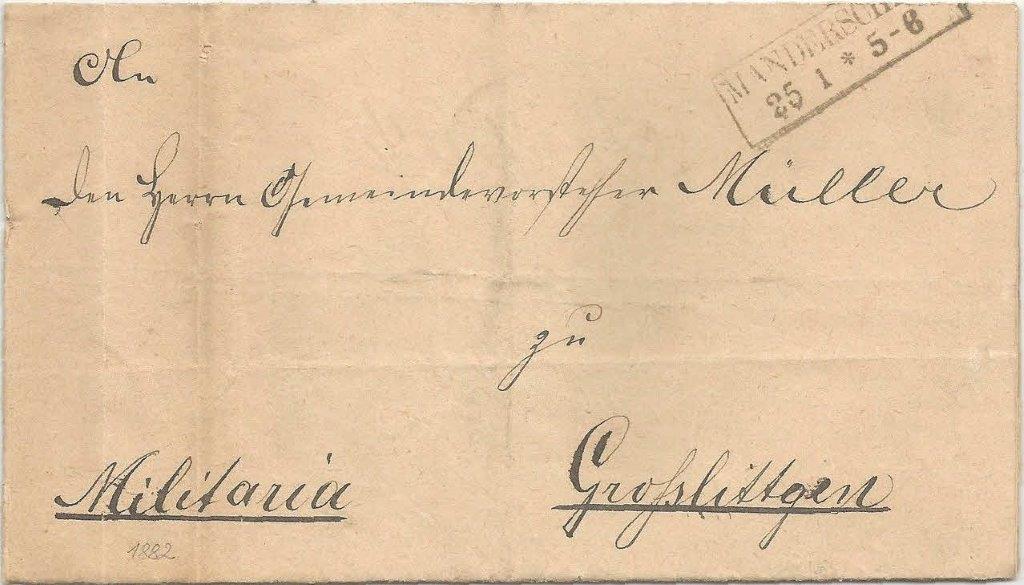 MANDERSCH
25 1 * 5-6
An
den Herrn Gemeindevorsteher Müller
zu
Militaria
Großlittgen
1882